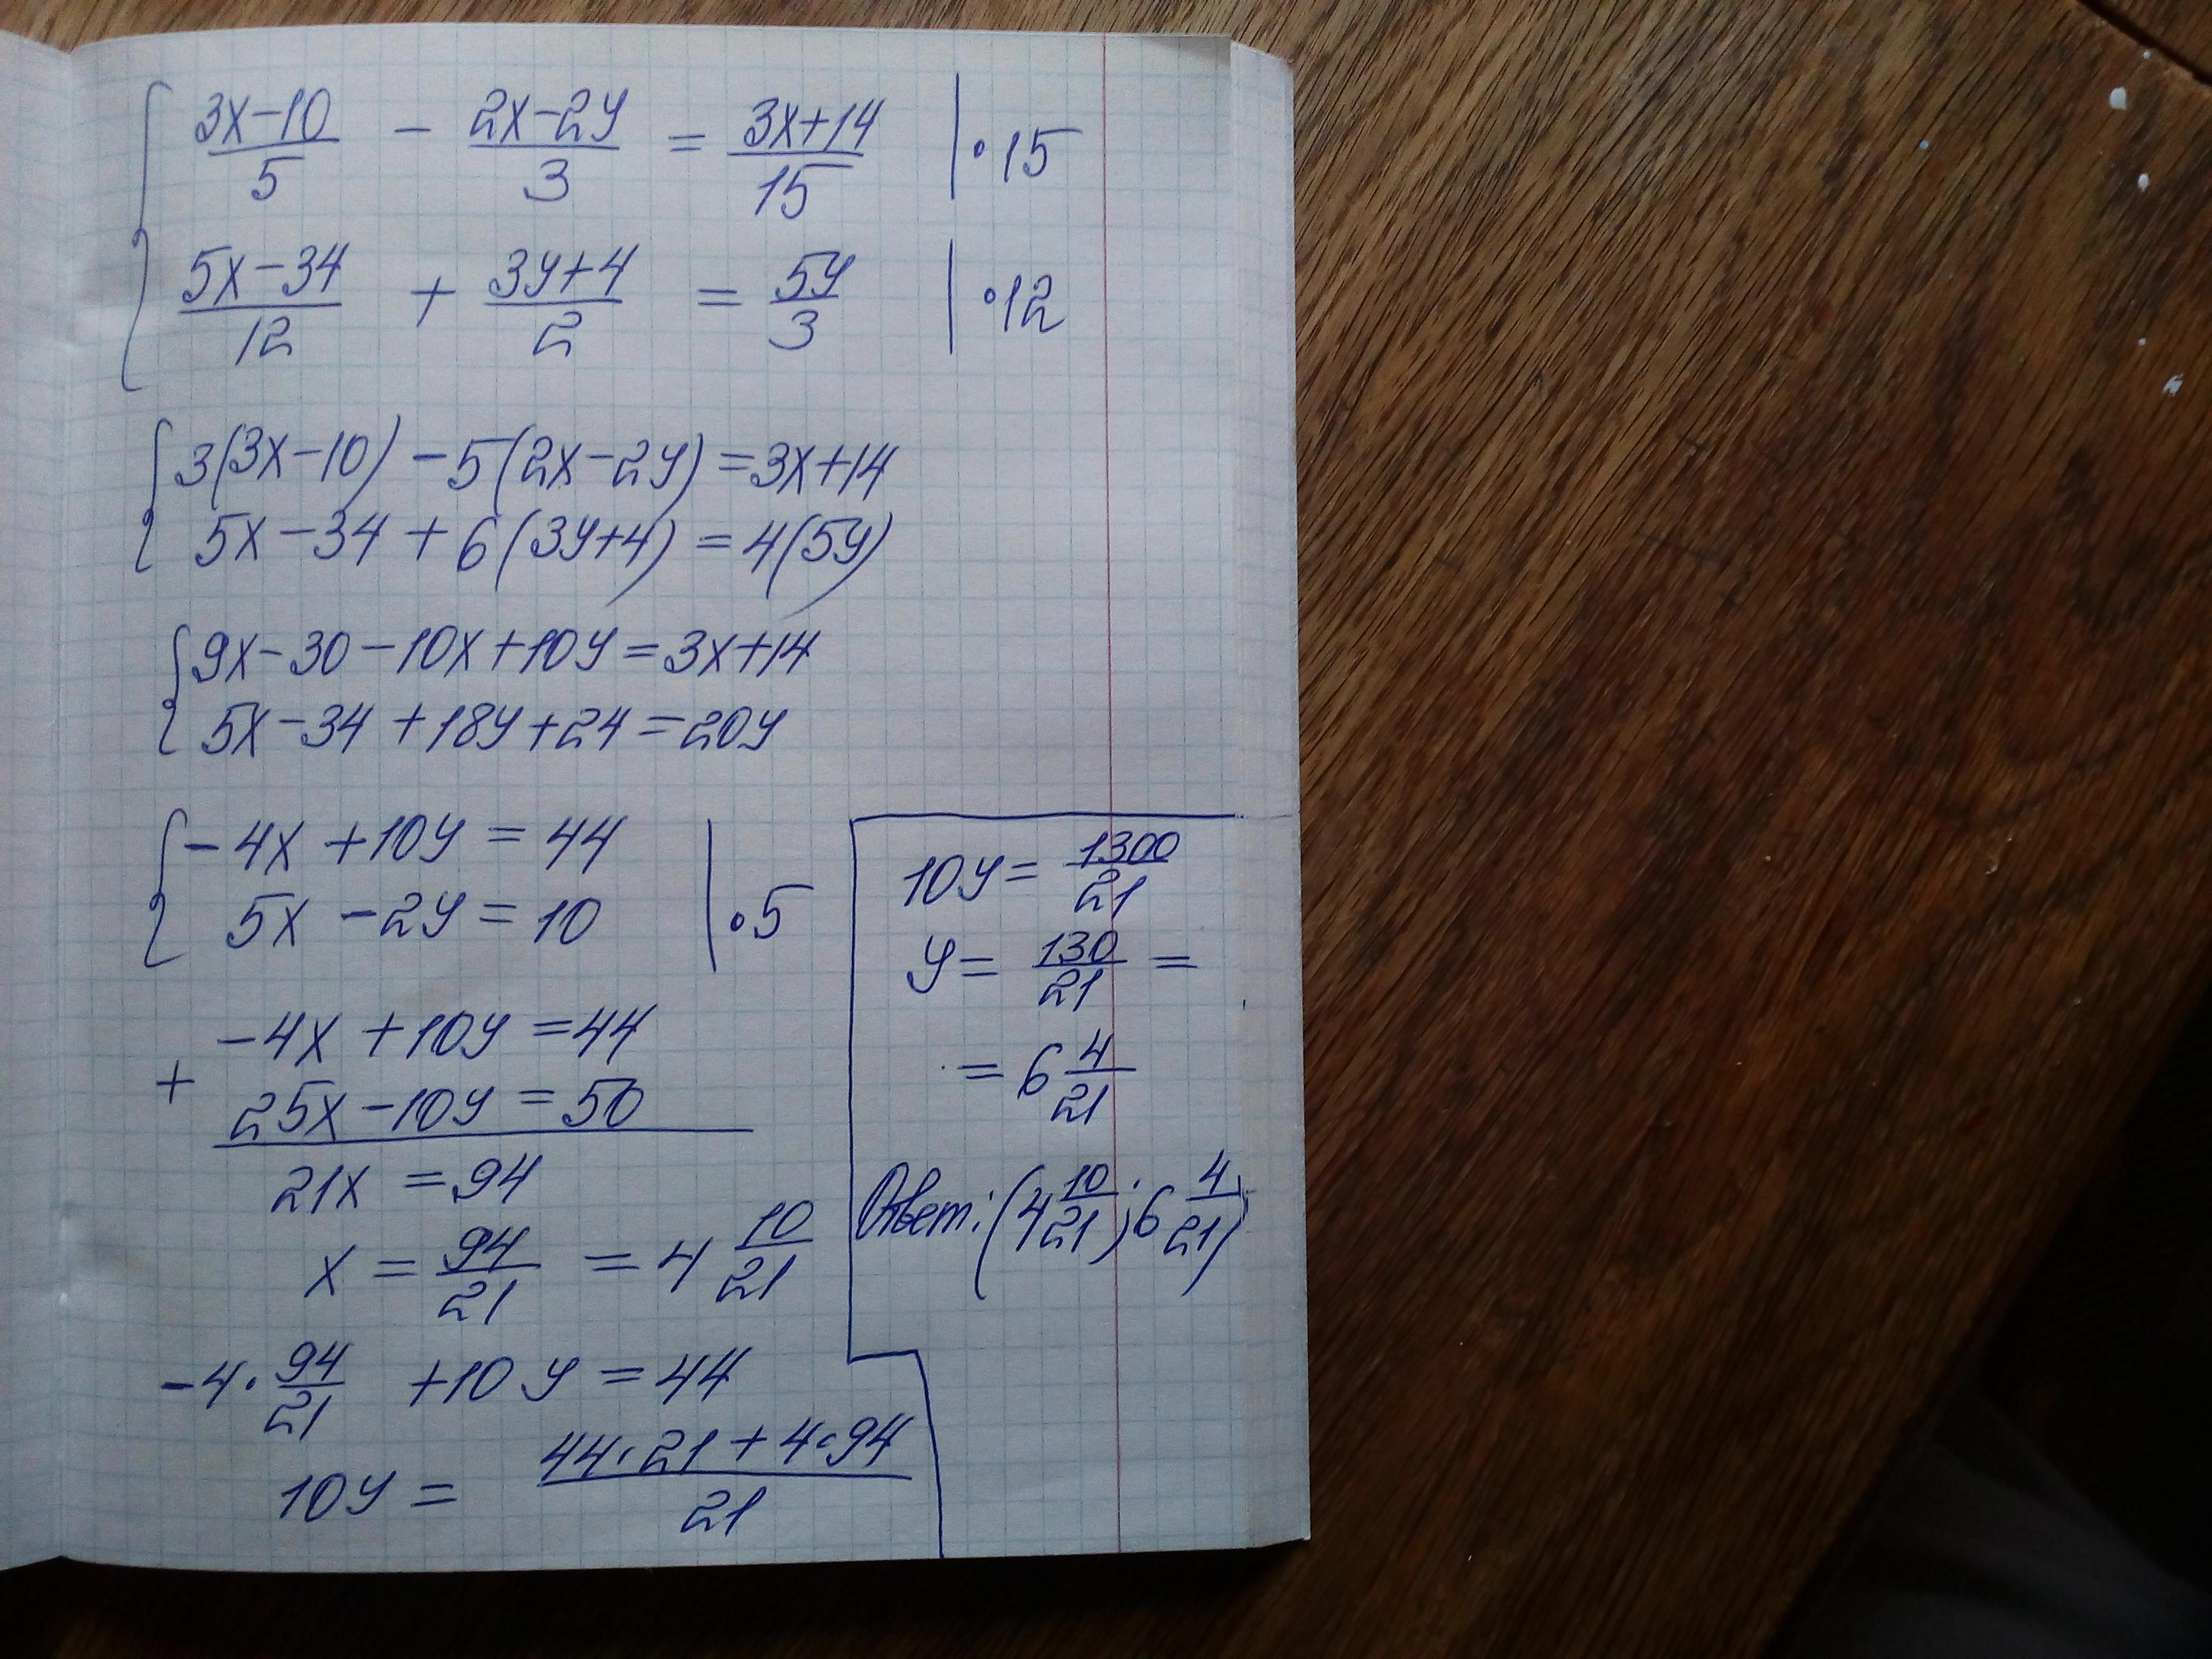 { (3x-10)/5 - (2x-2y)/3 = (3x+14)/15 | ·15
(5x-34)/12 + (3y+4)/2 = 5y/3 | ·12
{ 3(3x-10) - 5(2x-2y) = 3x+14
5x-34 + 6(3y+4) = 4(5y)
{ 9x-30-10x+10y = 3x+14
5x-34+18y+24 = 20y
{ -4x+10y = 44
5x-2y = 10 | ·5
-4x+10y = 44
+
25x-10y = 50
21x = 94
x = 94/21 = 4 10/21
-4· 94/21 + 10y = 44
10y = (44·21+4·94)/21
10y = 1300/21
y = 130/21 =
= 6 4/21
Ответ: (4 10/21; 6 4/21)